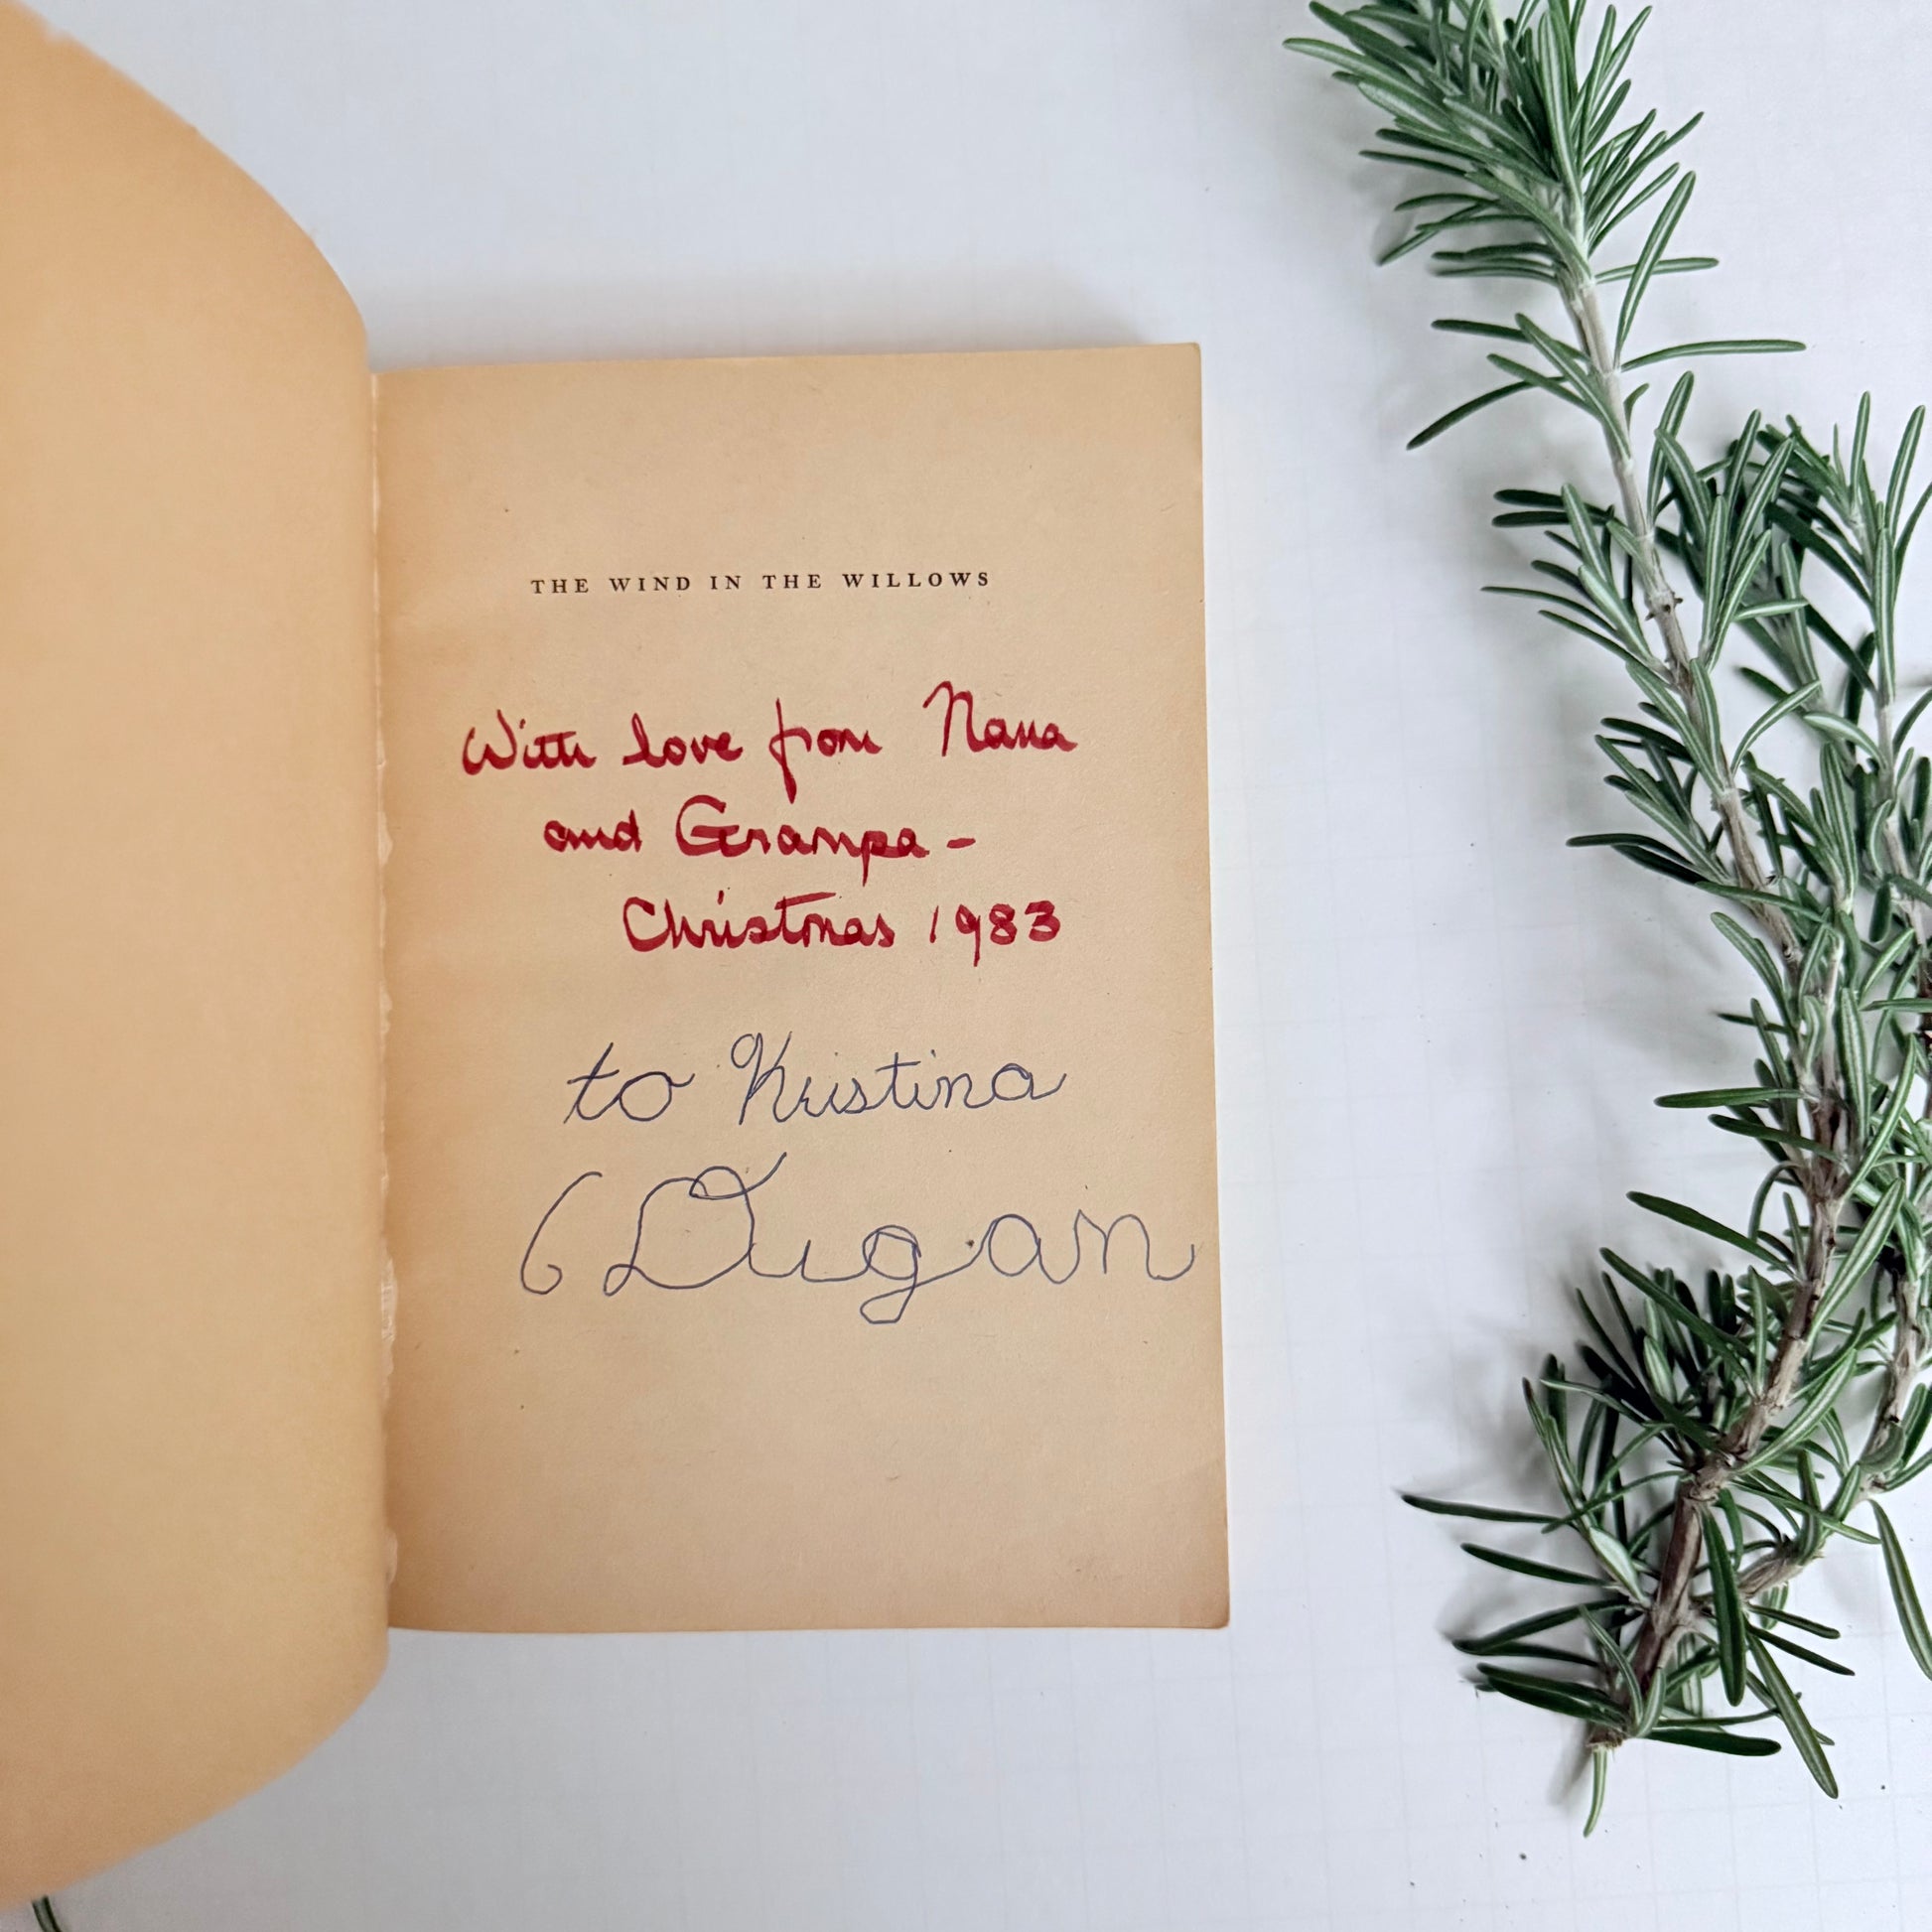 THE WIND IN THE WILLOWS
With love from Nana
and Grampa -
Christmas 1983
to Kristina
Dugan